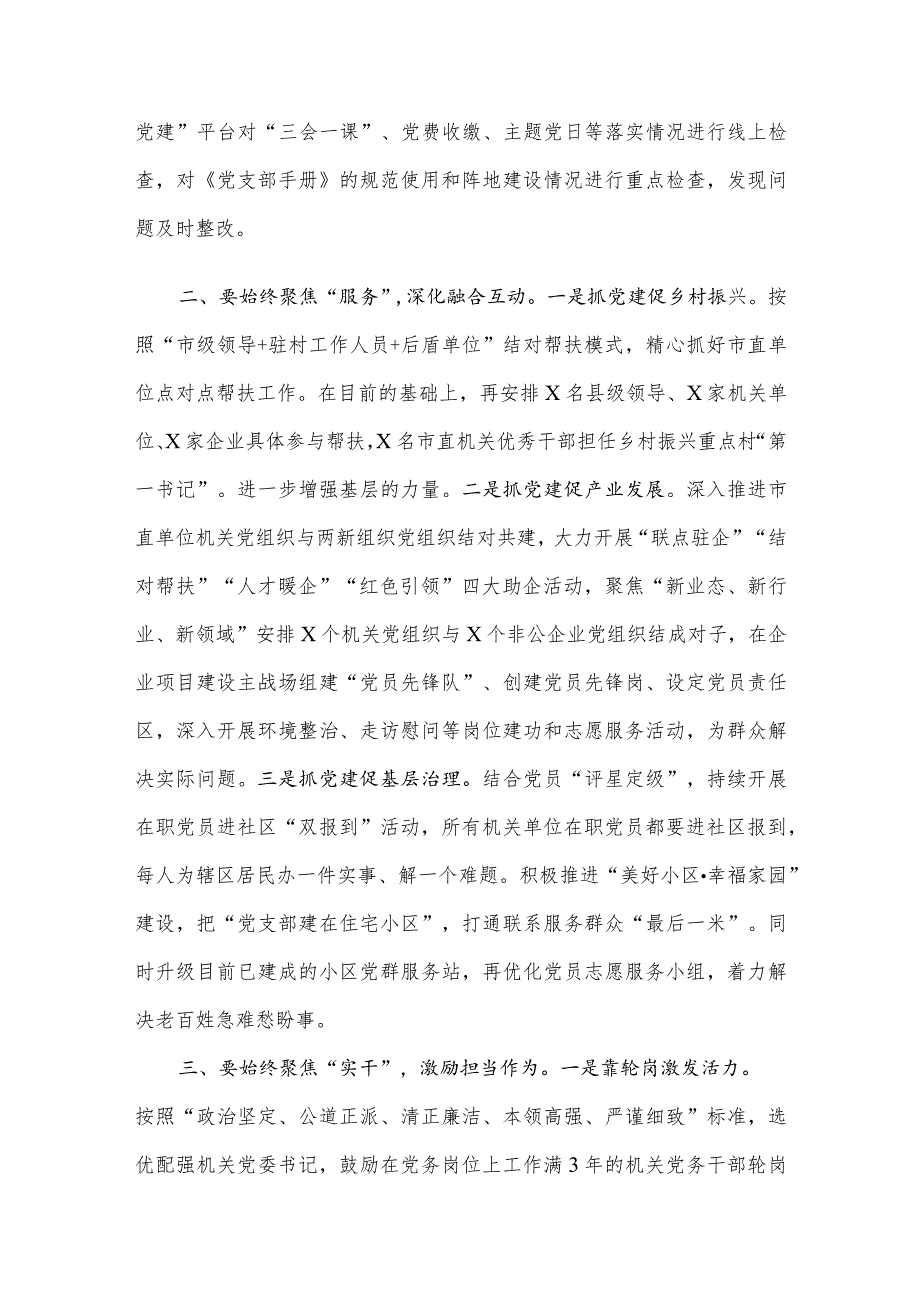 党建”平台对“三会一课”、党费收缴、主题党日等落实情况进行线上检
查，对《党支部手册》的规范使用和阵地建设情况进行重点检查，发现问
题及时整改。
二、要始终聚焦“服务”,深化融合互动。一是抓党建促乡村振兴。按
照“市级领导+驻村工作人员+后盾单位”结对帮扶模式，精心抓好市直单
位点对点帮扶工作。在目前的基础上，再安排X名县级领导、X家机关单
位、X家企业具体参与帮扶,X名市直机关优秀干部担任乡村振兴重点村“第
一书记”。进一步增强基层的力量。二是抓党建促产业发展。深入推进市
直单位机关党组织与两新组织党组织结对共建，大力开展“联点驻企”“结
对帮扶”“人才暖企”“红色引领”四大助企活动，聚焦“新业态、新行
业、新领域”安排X个机关党组织与X个非公企业党组织结成对子，在企
业项目建设主战场组建“党员先锋队”、创建党员先锋岗、设定党员责任
区，深入开展环境整治、走访慰问等岗位建功和志愿服务活动，为群众解
决实际问题。三是抓党建促基层治理。结合党员“评星定级”，持续开展
在职党员进社区“双报到”活动，所有机关单位在职党员都要进社区报到，
每人为辖区居民办一件实事、解一个难题。积极推进“美好小区•幸福家园”
建设，把“党支部建在住宅小区”，打通联系服务群众“最后一米”。同
时升级目前已建成的小区党群服务站，再优化党员志愿服务小组，着力解
决老百姓急难愁盼事。
三、要始终聚焦“实干”，激励担当作为。一是靠轮岗激发活力。
按照“政治坚定、公道正派、清正廉洁、本领高强、严谨细致”标准，选
优配强机关党委书记，鼓励在党务岗位上工作满3年的机关党务干部轮岗